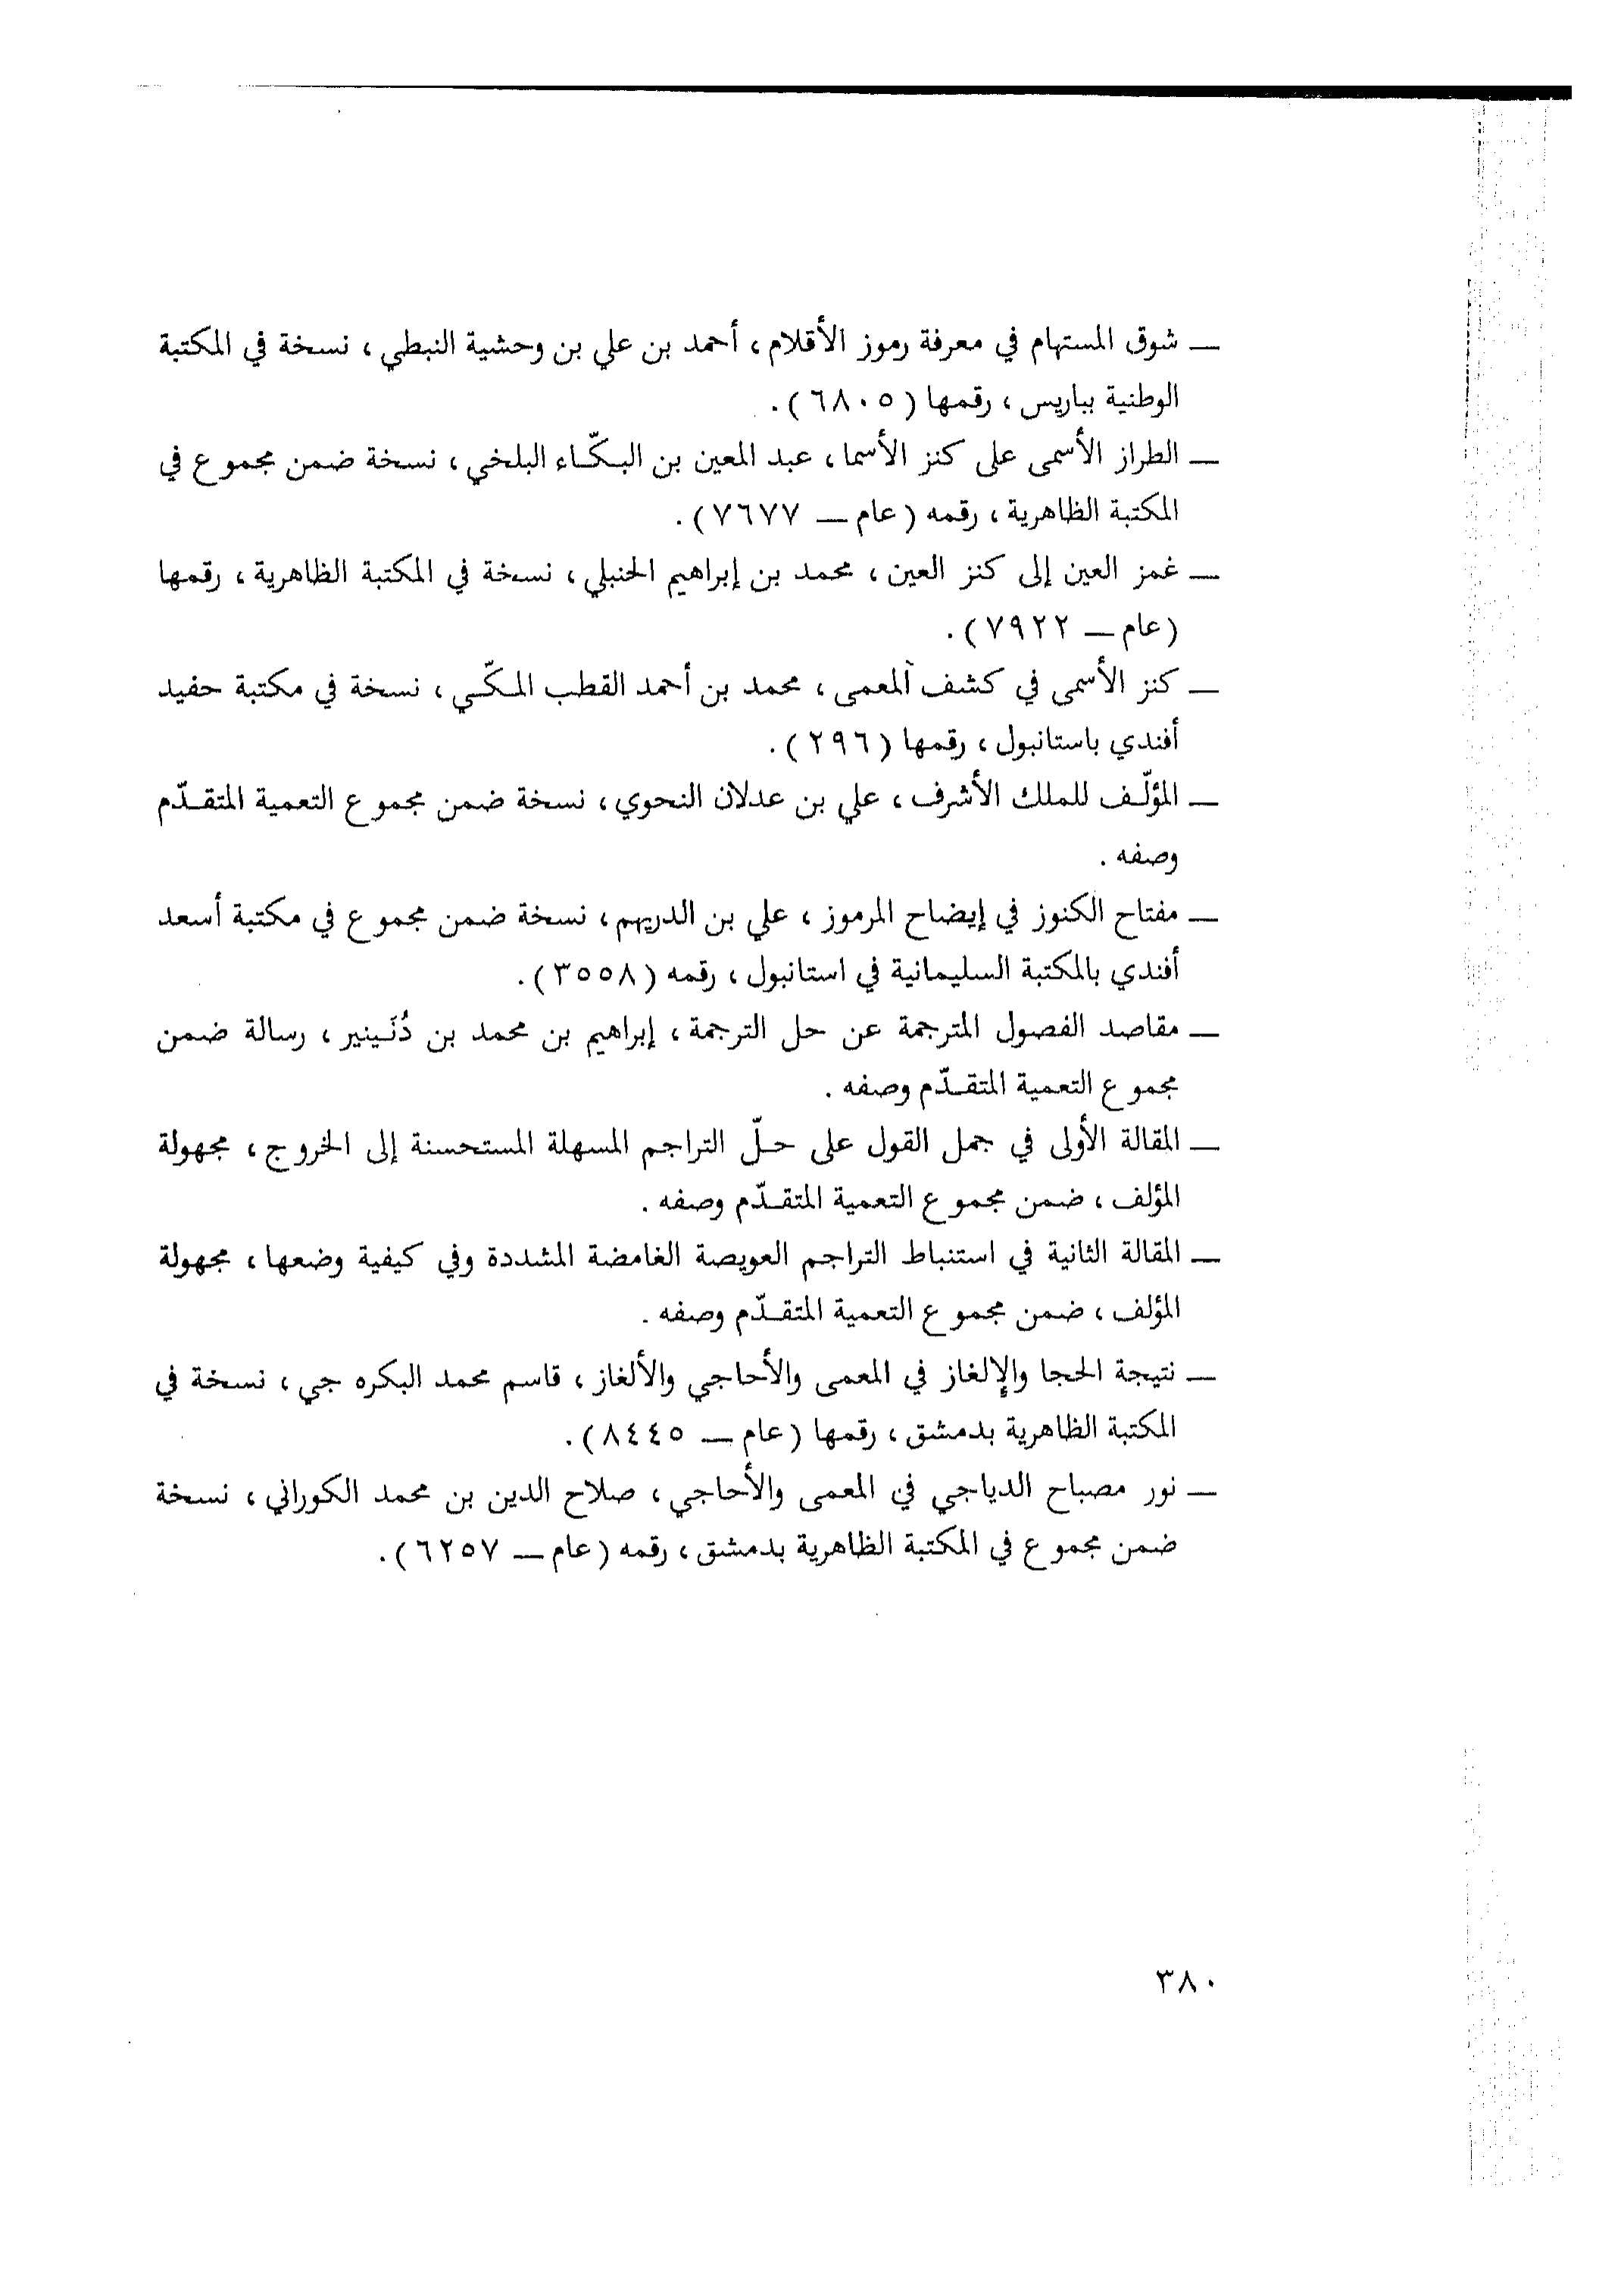 — شوق المستهام في معرفة رموز الأقلام، أحمد بن علي بن وحشية النبطي، نسخة في المكتبة
الوطنية بباريس، رقمها (٦٨٠٥).
— الطراز الأسمى على كنز الأسما، عبد المعين بن البكّاء البلخي، نسخة ضمن مجموع في
المكتبة الظاهرية، رقمه (عام — ٧٦٧٧).
— غمز العين إلى كنز العين، محمد بن إبراهيم الحنبلي، نسخة في المكتبة الظاهرية، رقمها
(عام — ٧٩٢٢).
— كنز الأسمى في كشف المعمى، محمد بن أحمد القطب المكّي، نسخة في مكتبة حفيد
أفندي باستانبول، رقمها (٢٩٦).
— المؤلّف للملك الأشرف، علي بن عدلان النحوي، نسخة ضمن مجموع التعمية المتقدّم
وصفه.
— مفتاح الكنوز في إيضاح المرموز، علي بن الدريهم، نسخة ضمن مجموع في مكتبة أسعد
أفندي بالمكتبة السليمانية في استانبول، رقمه (٣٥٥٨).
— مقاصد الفصول المترجمة عن حل الترجمة، إبراهيم بن محمد بن دُنَينير، رسالة ضمن
مجموع التعمية المتقدّم وصفه.
— المقالة الأولى في جمل القول على حلّ التراجم المسهلة المستحسنة إلى الخروج، مجهولة
المؤلف، ضمن مجموع التعمية المتقدّم وصفه.
— المقالة الثانية في استنباط التراجم العويصة الغامضة المشددة وفي كيفية وضعها، مجهولة
المؤلف، ضمن مجموع التعمية المتقدّم وصفه.
— نتيجة الحجا والإلغاز في المعمى والأحاجي والألغاز، قاسم محمد البكره جي، نسخة في
المكتبة الظاهرية بدمشق، رقمها (عام — ٨٤٤٥).
— نور مصباح الدياجي في المعمى والأحاجي، صلاح الدين بن محمد الكوراني، نسخة
ضمن مجموع في المكتبة الظاهرية بدمشق، رقمه (عام — ٦٢٥٧).
٣٨٠